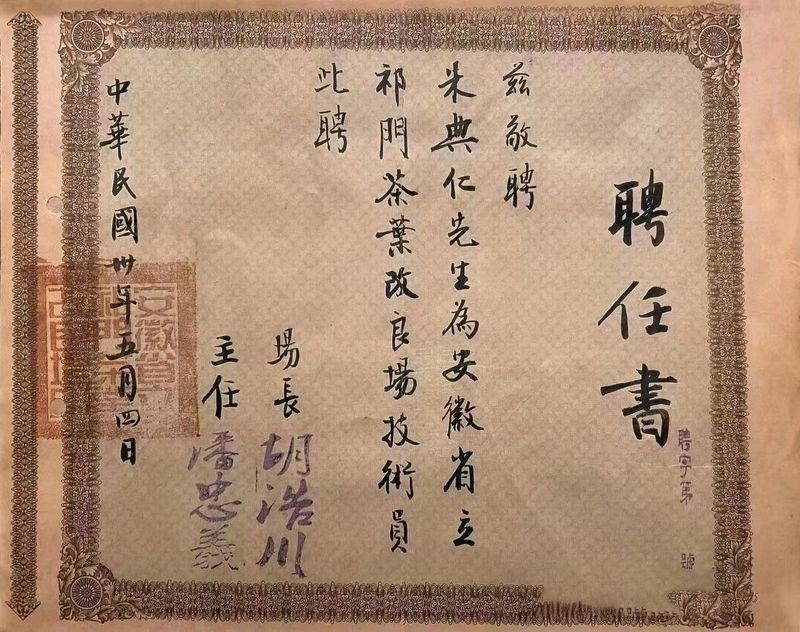 聘任書
聘字第 號
茲敬聘
朱典仁先生為安徽省立
祁門茶葉改良場技術員
此聘
場長 胡浩川
主任 潘忠義
中華民國卅年五月四日